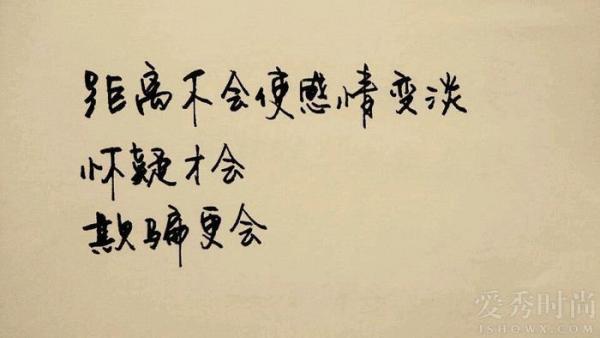 距离不会使感情变淡
怀疑才会
欺骗更会
爱秀时尚
ISHOWX.COM